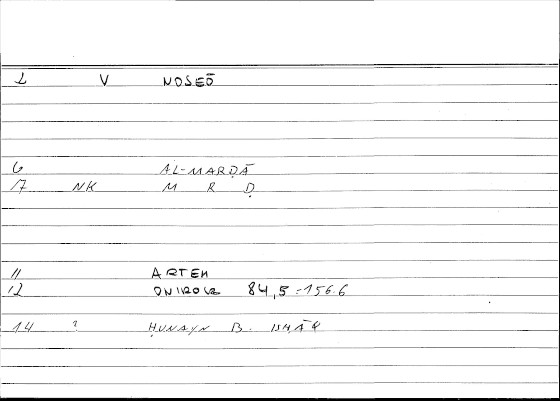 1 V NOSEŌ
6 AL-MARḌĀ
17 NK M R Ḍ
11 ARTEM
12 ONIROCR 84,5 = 156.6
14 ? ḤUNAYN B. ISḤĀQ